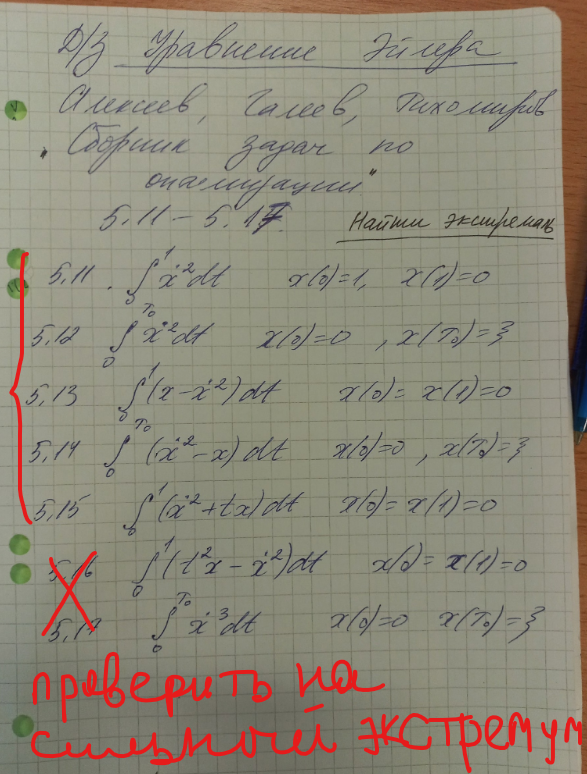 Д/З Уравнение Эйлера
Алексеев, Галеев, Тихомиров
"Сборник задач по
оптимизации"
5.11 – 5.17. Найти экстремаль
5.11. ∫₀¹ ẋ² dt x(0)=1, x(1)=0
5.12 ∫₀^T₀ ẋ² dt x(0)=0, x(T₀)=ξ
5.13 ∫₀¹ (x-ẋ²)dt x(0)= x(1)=0
5.14 ∫₀^T₀ (ẋ²-x)dt x(0)=0, x(T₀)=ξ
5.15 ∫₀¹ (ẋ²+tx)dt x(0)= x(1)=0
5.16 ∫₀¹ (t²x-ẋ²)dt x(0)= x(1)=0
5.17 ∫₀^T₀ ẋ³dt x(0)=0 x(T₀)=ξ
проверить на
сильный экстремум